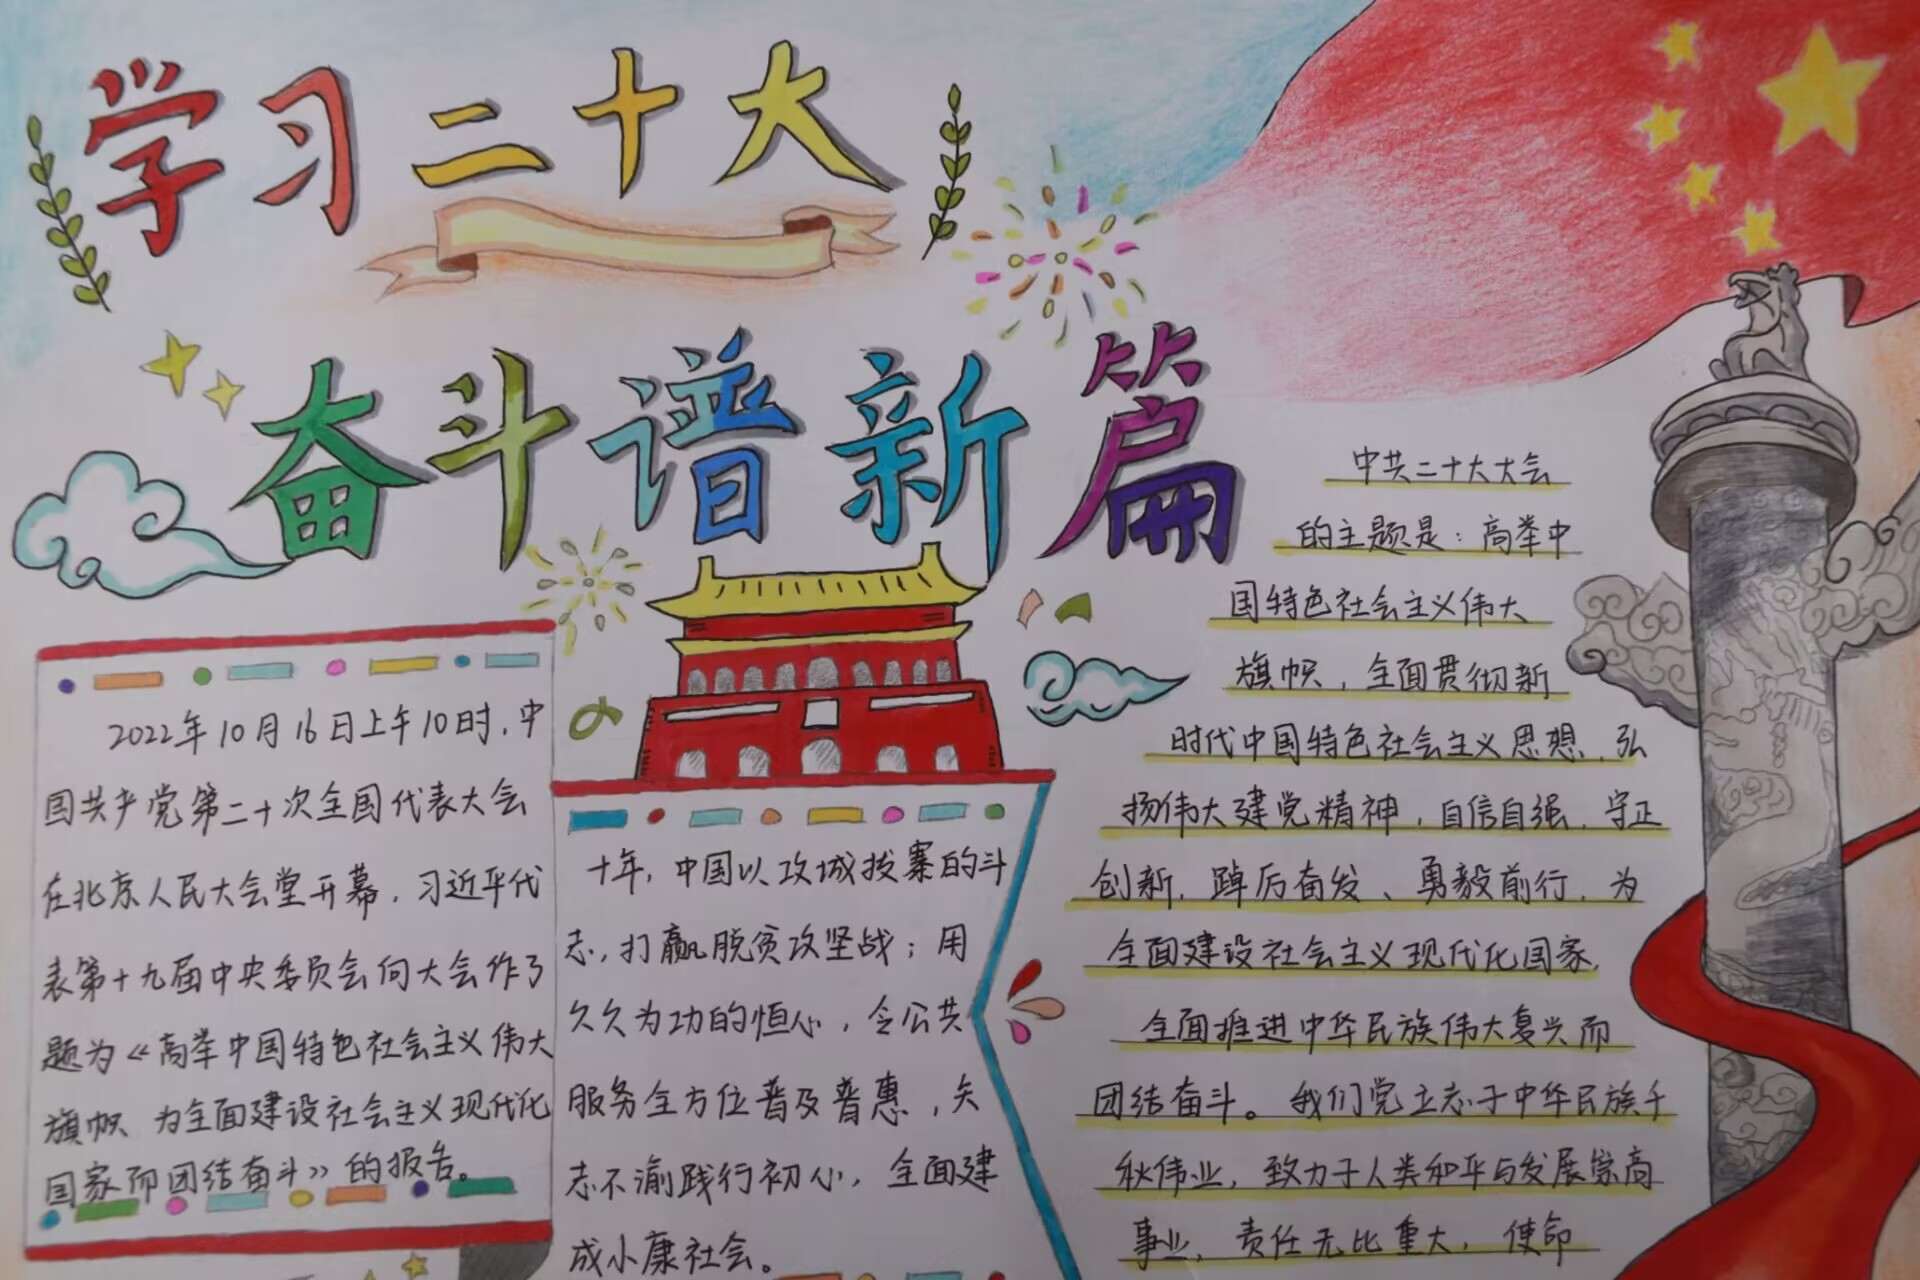 学习二十大
奋斗谱新篇
2022年10月16日上午10时,中
国共产党第二十次全国代表大会
在北京人民大会堂开幕,习近平代
表第十九届中央委员会向大会作了
题为《高举中国特色社会主义伟大
旗帜 为全面建设社会主义现代化
国家而团结奋斗》的报告。
十年,中国以攻城拔寨的斗
志,打赢脱贫攻坚战;用
久久为功的恒心,令公共
服务全方位普及普惠,矢
志不渝践行初心,全面建
成小康社会。
中共二十大大会
的主题是:高举中
国特色社会主义伟大
旗帜,全面贯彻新
时代中国特色社会主义思想,弘
扬伟大建党精神,自信自强,守正
创新,踔厉奋发、勇毅前行,为
全面建设社会主义现代化国家,
全面推进中华民族伟大复兴而
团结奋斗。我们党立志于中华民族千
秋伟业,致力于人类和平与发展崇高
事业,责任无比重大,使命